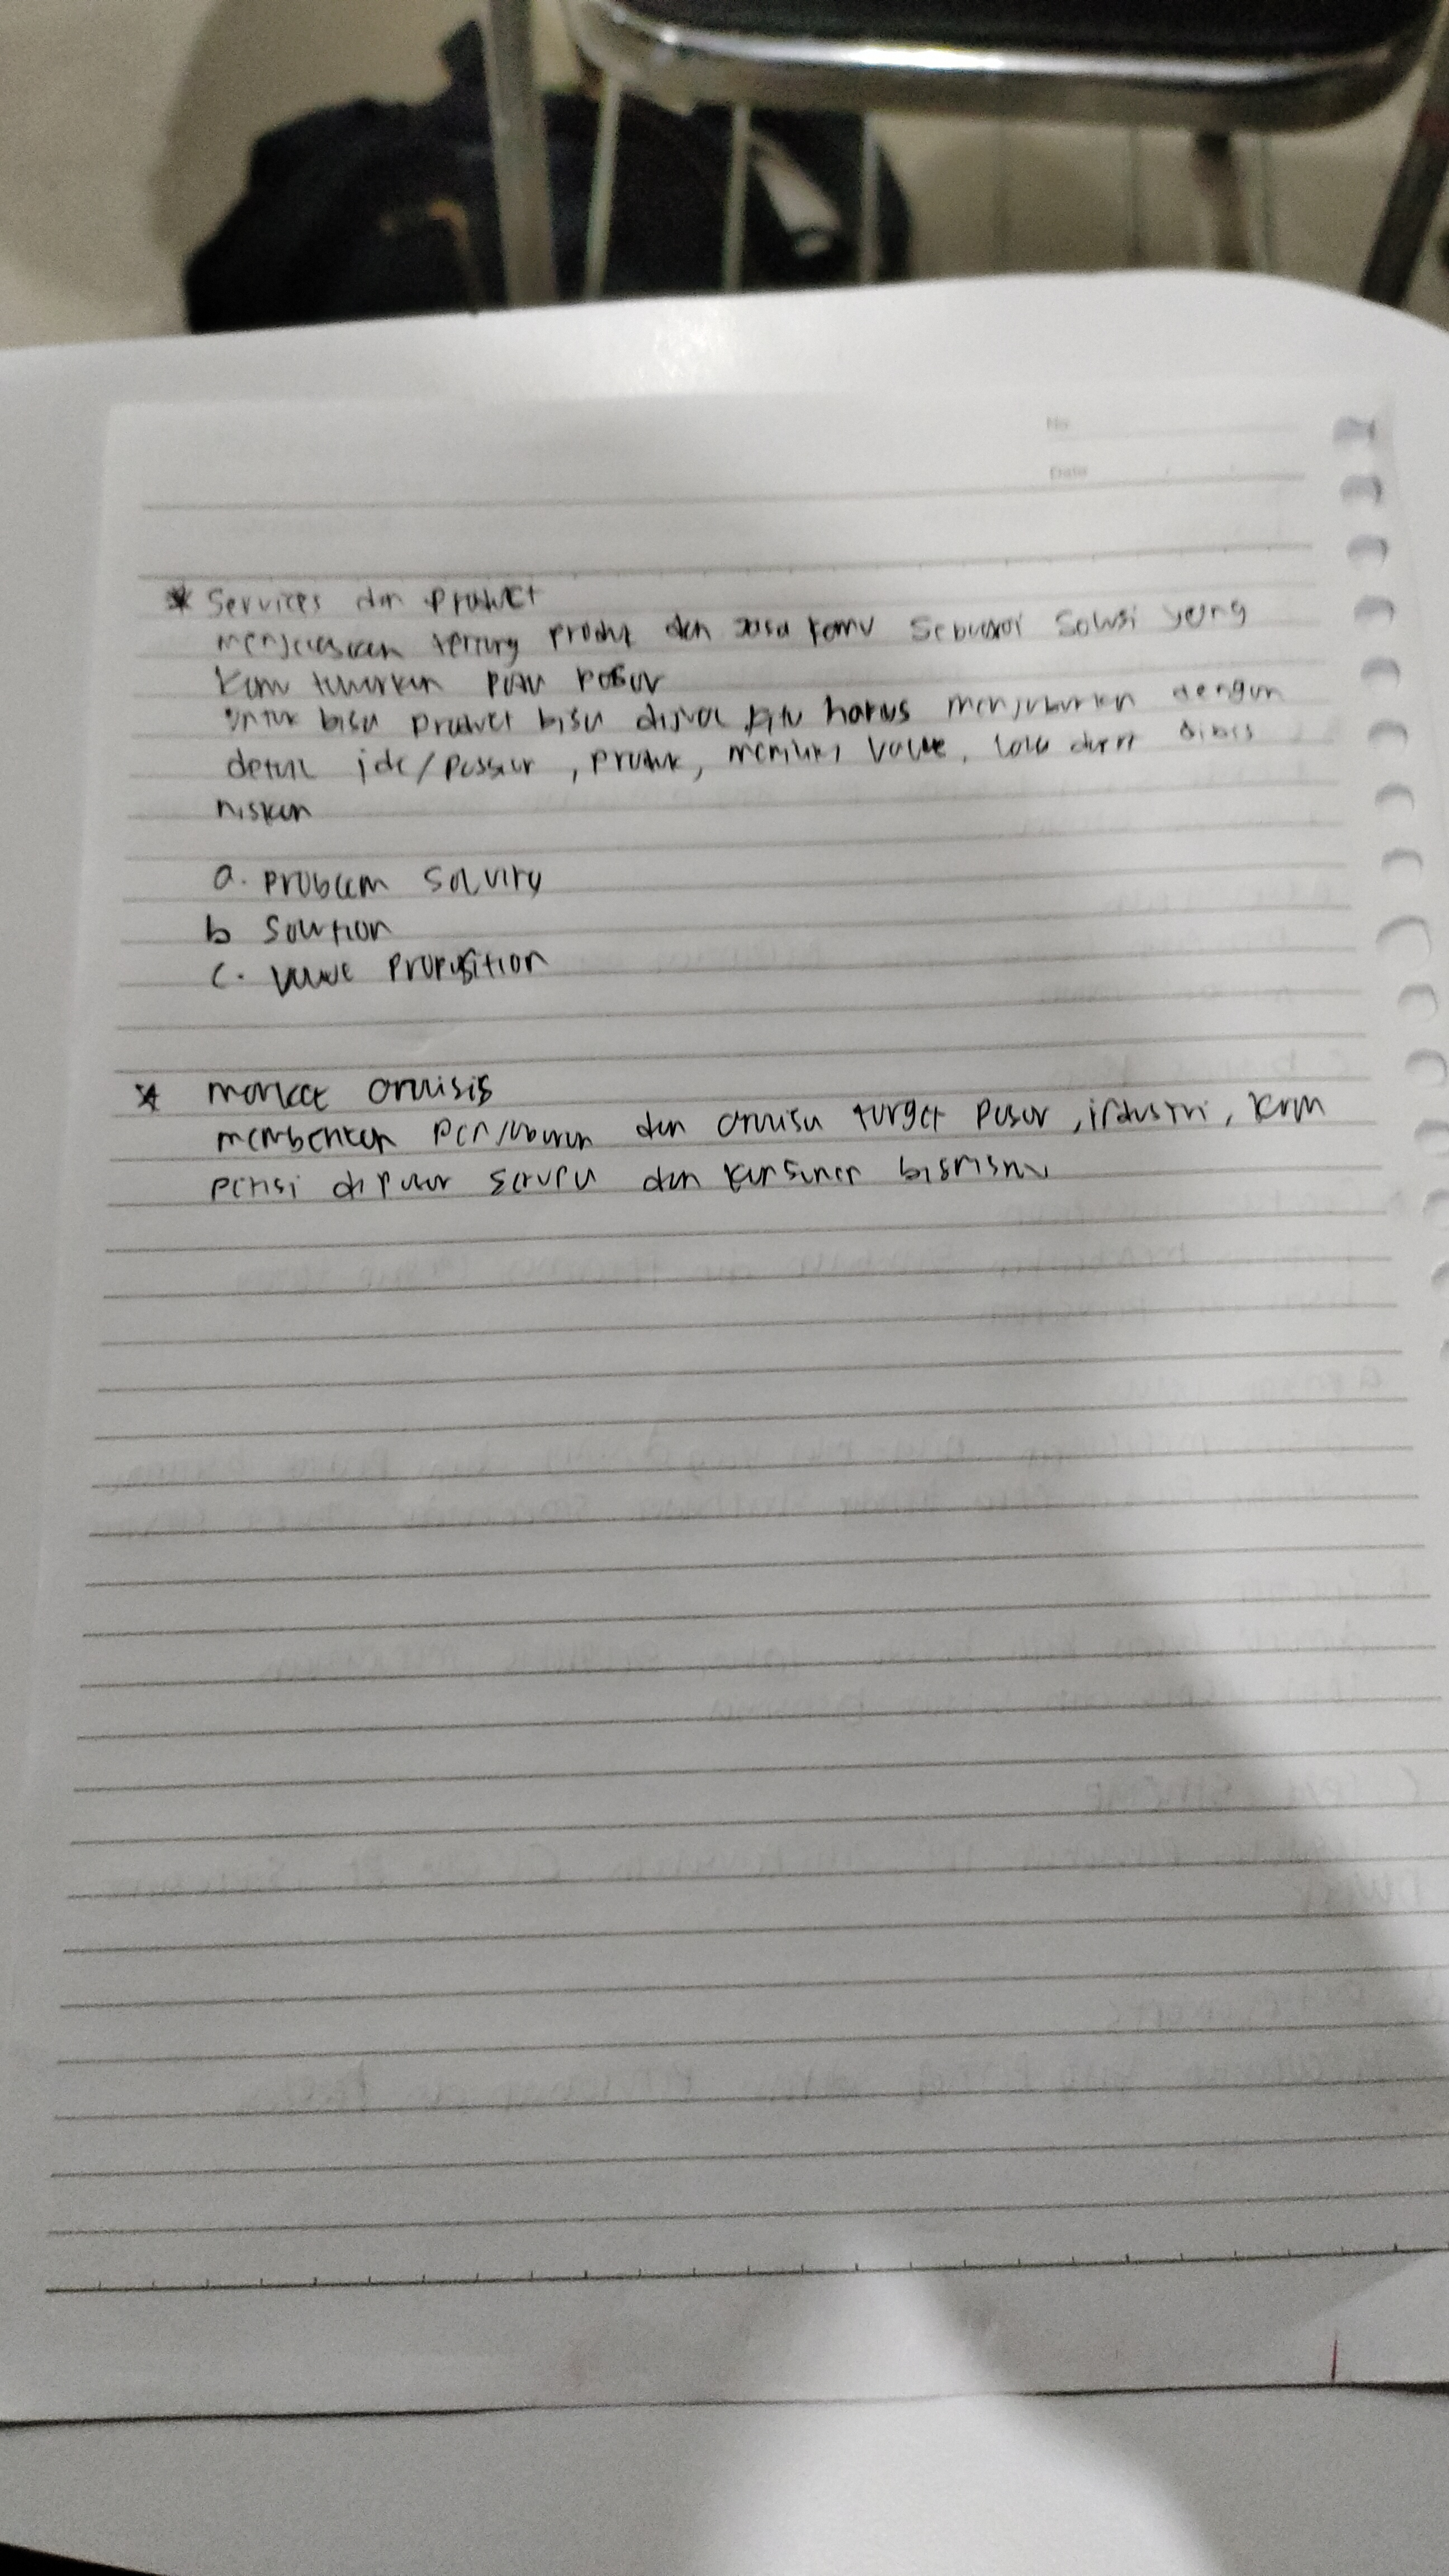 No
Date
* Services dan Product
menjelaskan tentang produk dan jasa kamu sebuagai solusi yang
kamu tawarkan pada pasar
untuk bisa product bisa dijual kita harus menjabarkan dengan
detail ide/pasar, produk, memiliki value, lalu dibis
niskan
a. problem solving
b solution
c. value proposition
* market analisis
memberikan penjabaran dan analisa target pasar, industri, kom
petisi dipasar serupa dan konsumen bisnismu